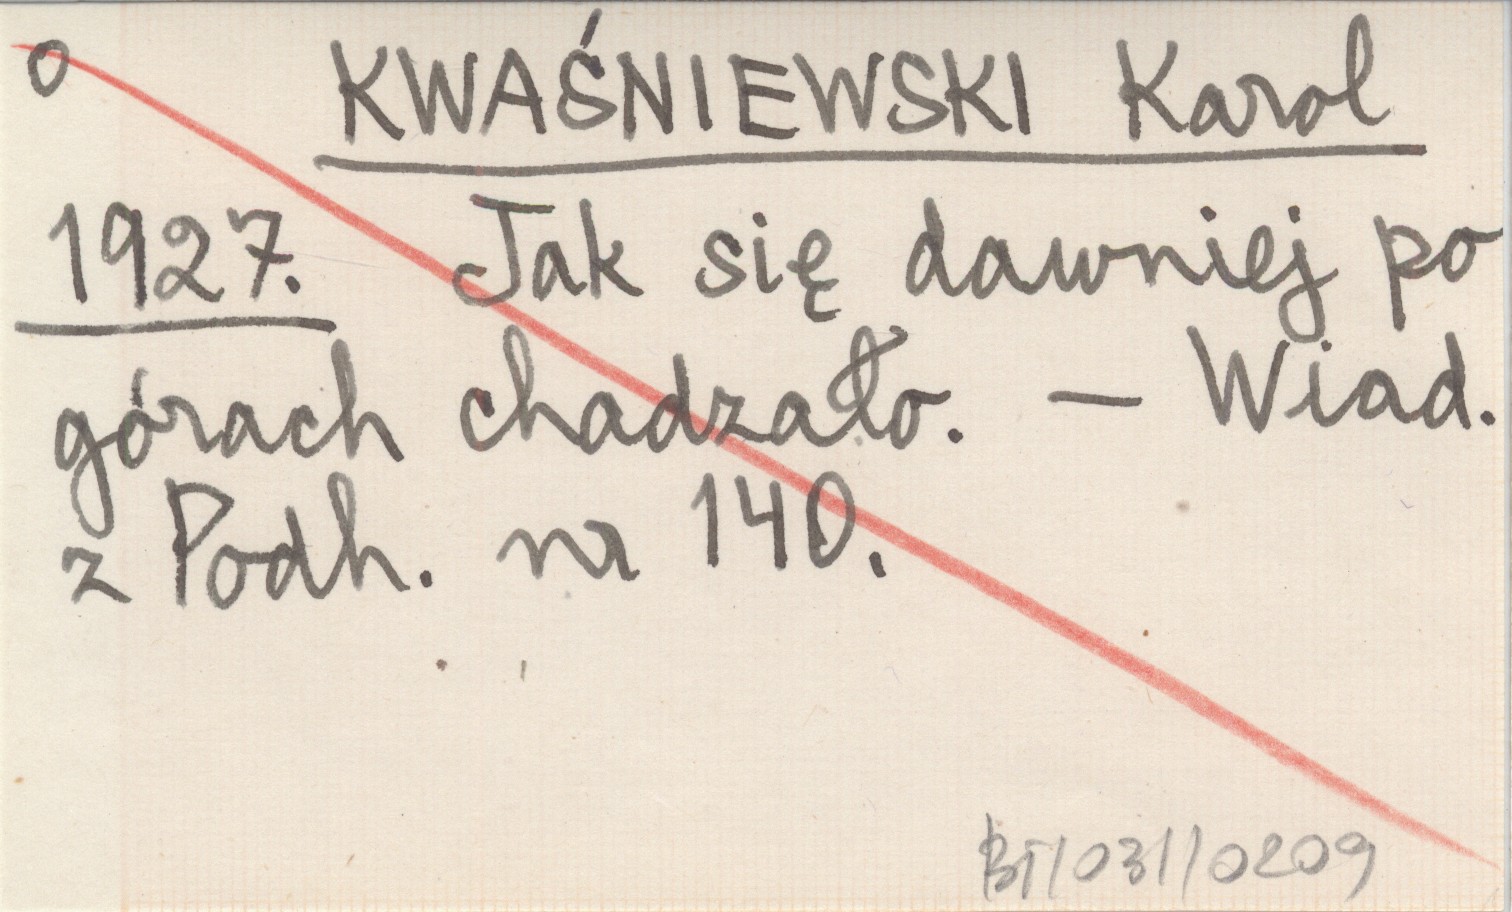 o KWAŚNIEWSKI Karol
1927. Jak się dawniej po
górach chadzało. — Wiad.
z Podh. nr 140.
BT/031/0209